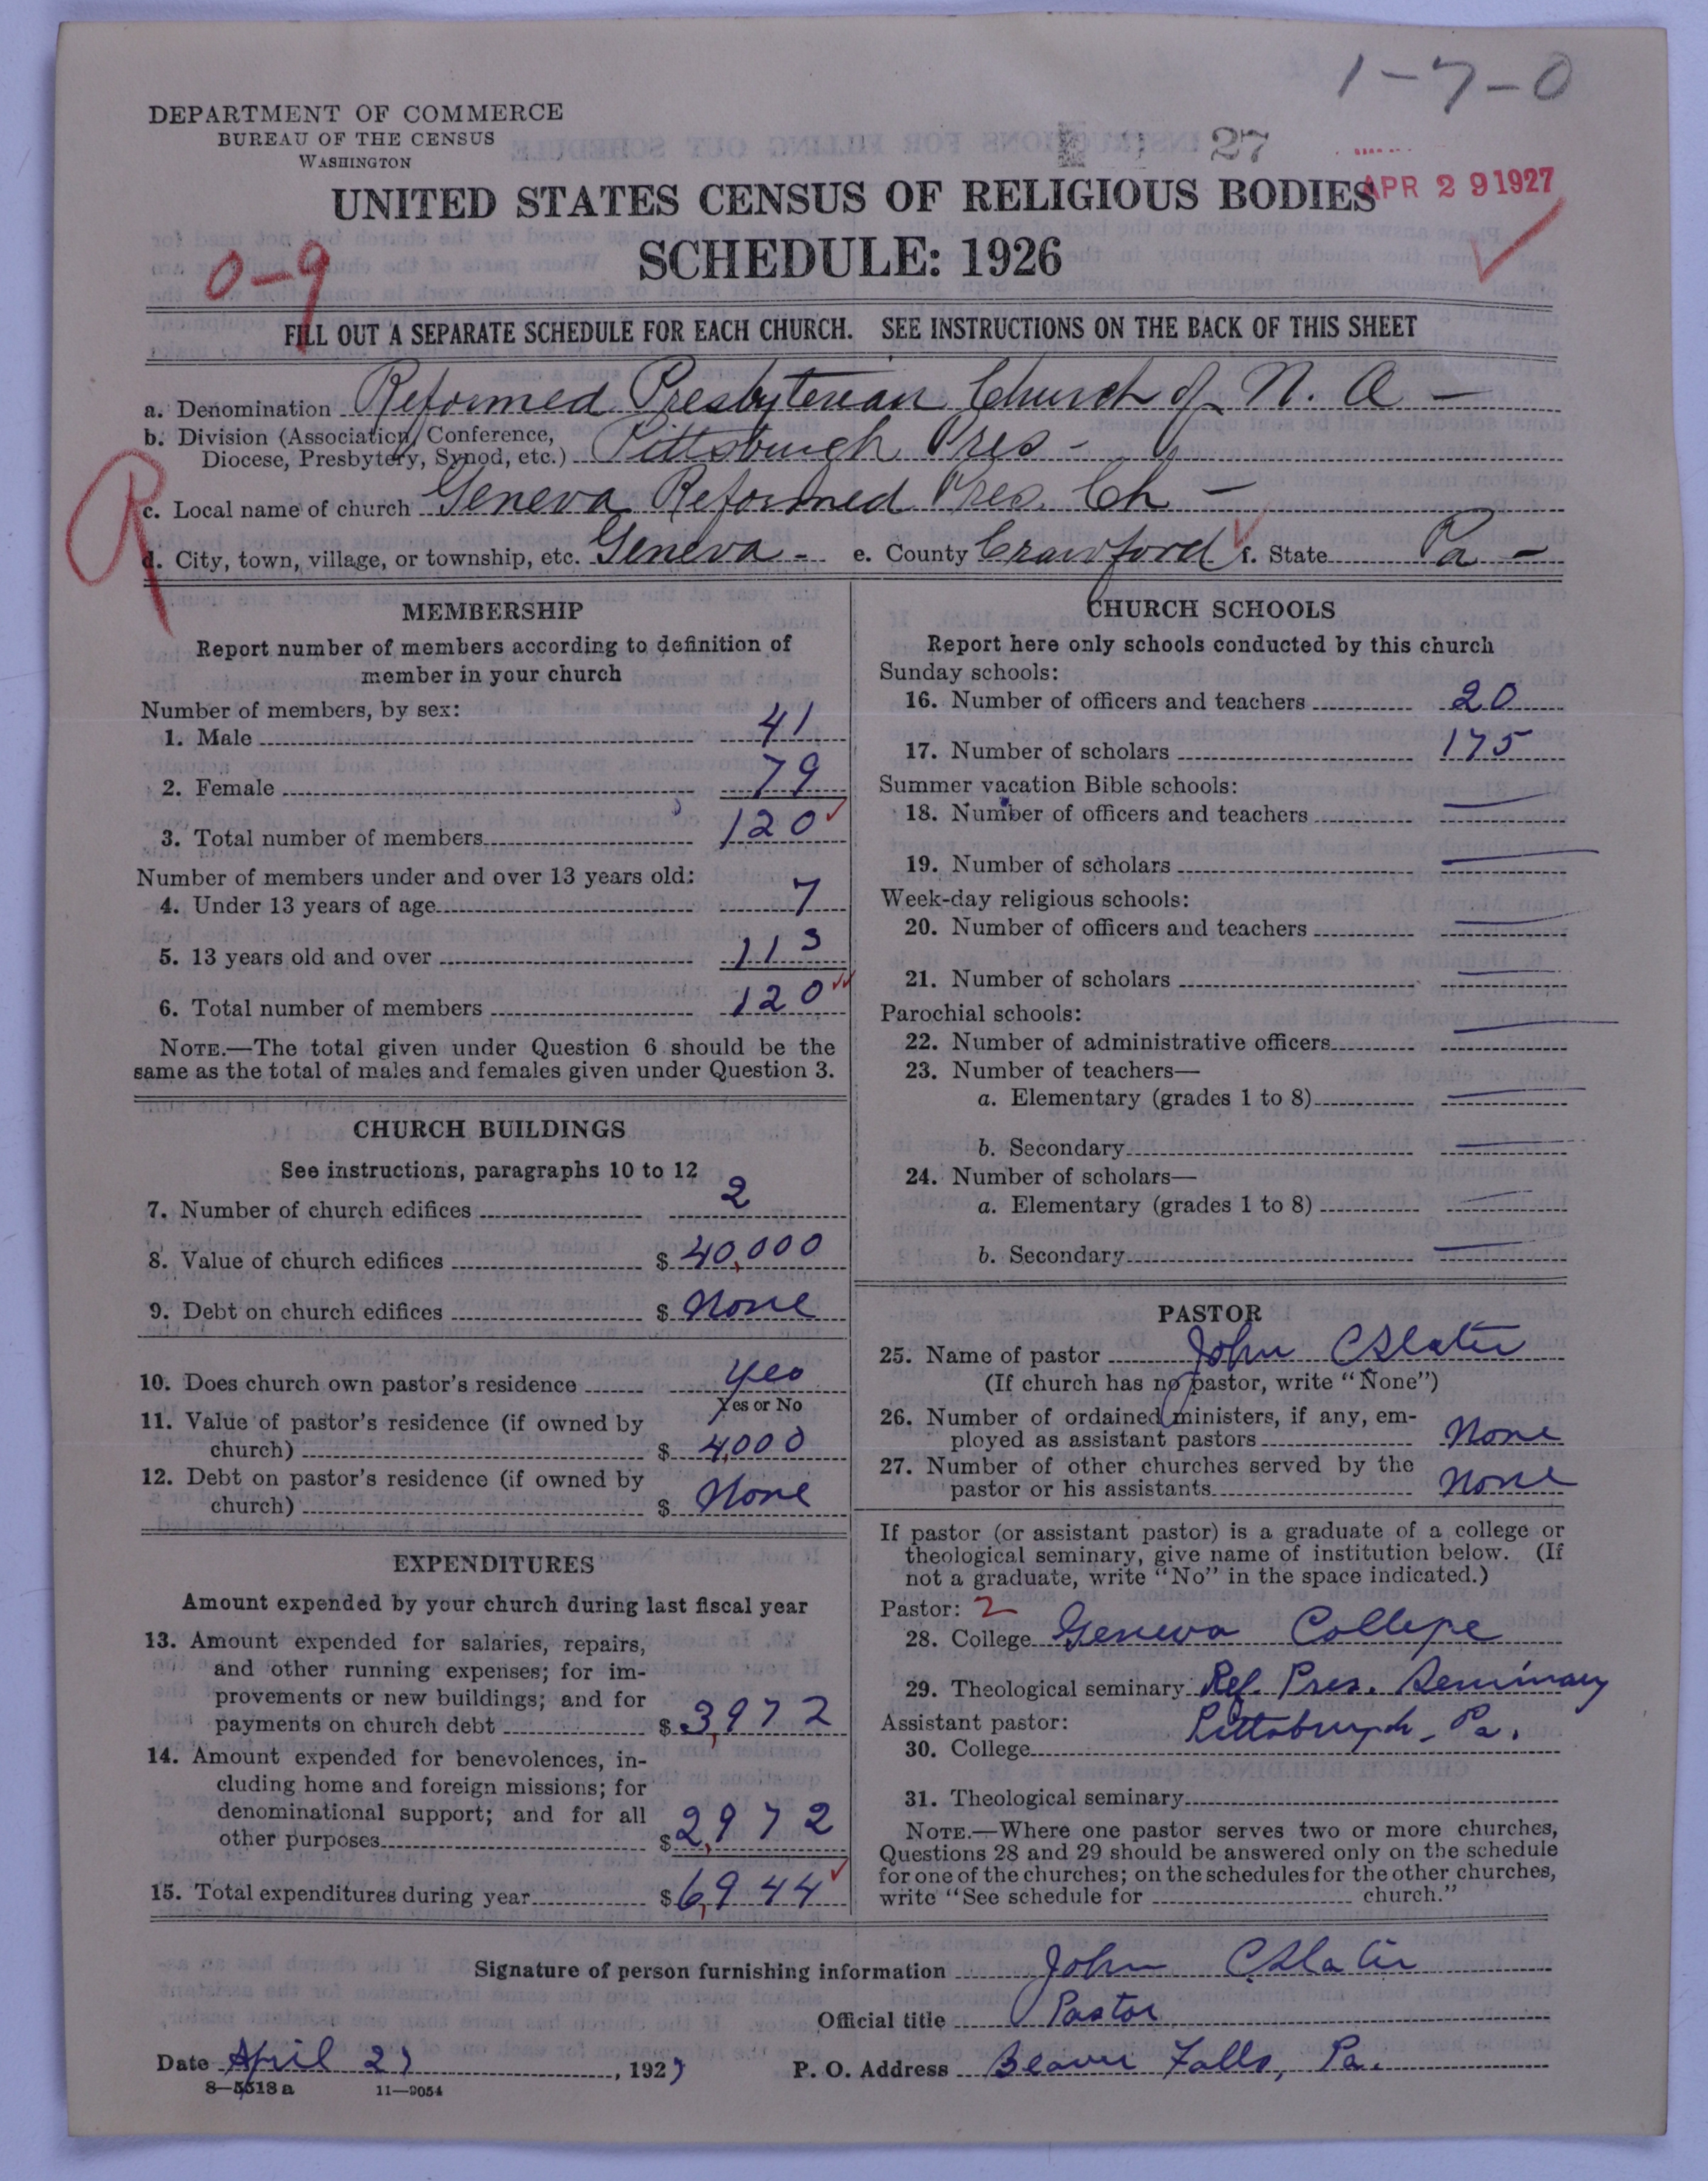 1-7-0
DEPARTMENT OF COMMERCE
BUREAU OF THE CENSUS
WASHINGTON
27
APR 29 1927
UNITED STATES CENSUS OF RELIGIOUS BODIES
SCHEDULE: 1926
0-9
FILL OUT A SEPARATE SCHEDULE FOR EACH CHURCH. SEE INSTRUCTIONS ON THE BACK OF THIS SHEET
a. Denomination Reformed Presbyterian Church of N. A -
b. Division (Association, Conference,
Diocese, Presbytery, Synod, etc.) Pittsburgh Pres -
R
c. Local name of church Geneva Reformed Pres. Ch -
d. City, town, village, or township, etc. Geneva - e. County Crawford f. State Pa -
MEMBERSHIP
Report number of members according to definition of
member in your church
Number of members, by sex:
1. Male 41
2. Female 79
3. Total number of members 120
Number of members under and over 13 years old:
4. Under 13 years of age 7
5. 13 years old and over 113
6. Total number of members 120
NOTE.—The total given under Question 6 should be the
same as the total of males and females given under Question 3.
CHURCH BUILDINGS
See instructions, paragraphs 10 to 12
7. Number of church edifices 2
8. Value of church edifices $ 40,000
9. Debt on church edifices $ None
10. Does church own pastor's residence Yes
Yes or No
11. Value of pastor's residence (if owned by
church) $ 4,000
12. Debt on pastor's residence (if owned by
church) $ None
EXPENDITURES
Amount expended by your church during last fiscal year
13. Amount expended for salaries, repairs,
and other running expenses; for im-
provements or new buildings; and for
payments on church debt $ 3,972
14. Amount expended for benevolences, in-
cluding home and foreign missions; for
denominational support; and for all
other purposes $ 2,972
15. Total expenditures during year $ 6,944
CHURCH SCHOOLS
Report here only schools conducted by this church
Sunday schools:
16. Number of officers and teachers 20
17. Number of scholars 175
Summer vacation Bible schools:
18. Number of officers and teachers
19. Number of scholars
Week-day religious schools:
20. Number of officers and teachers
21. Number of scholars
Parochial schools:
22. Number of administrative officers
23. Number of teachers—
a. Elementary (grades 1 to 8)
b. Secondary
24. Number of scholars—
a. Elementary (grades 1 to 8)
b. Secondary
PASTOR
25. Name of pastor John C Slater
(If church has no pastor, write "None")
26. Number of ordained ministers, if any, em-
ployed as assistant pastors None
27. Number of other churches served by the
pastor or his assistants None
If pastor (or assistant pastor) is a graduate of a college or
theological seminary, give name of institution below. (If
not a graduate, write "No" in the space indicated.)
Pastor: 2
28. College Geneva College
29. Theological seminary Ref. Pres. Seminary
Assistant pastor: Pittsburgh, Pa.
30. College
31. Theological seminary
NOTE.—Where one pastor serves two or more churches,
Questions 28 and 29 should be answered only on the schedule
for one of the churches; on the schedules for the other churches,
write "See schedule for church."
Signature of person furnishing information John C Slater
Official title Pastor
Date April 27, 1927 P. O. Address Beaver Falls, Pa.
8—5518a 11—9054